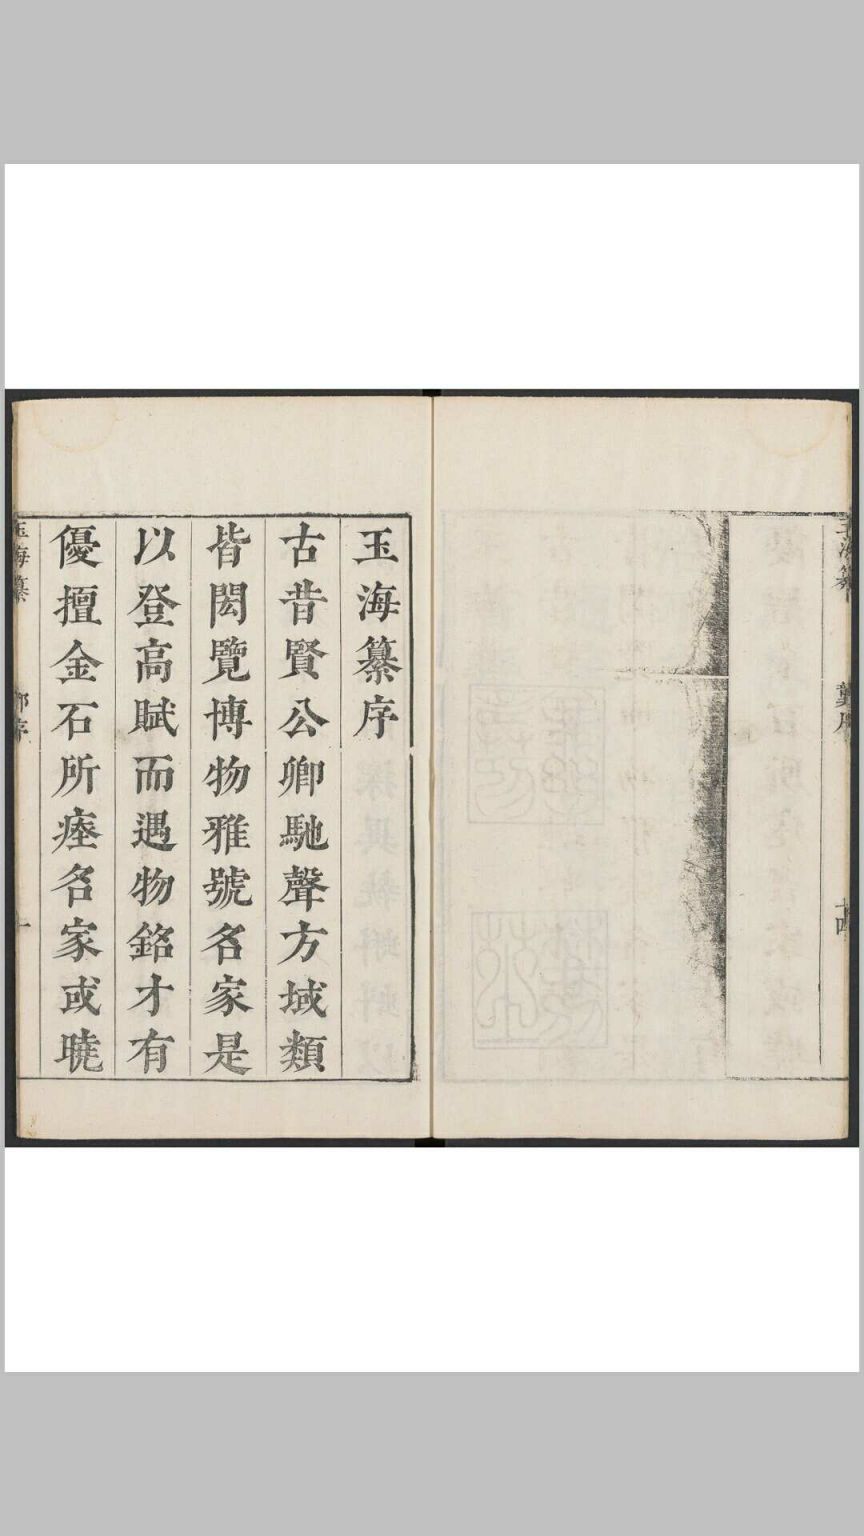 玉海纂
龔序
十四
玉海纂序
古昔賢公卿馳聲方域類
皆閎覽博物雅號名家是
以登高賦而遇物銘才有
優擅金石所瘞名家或曉
玉海纂
序
一